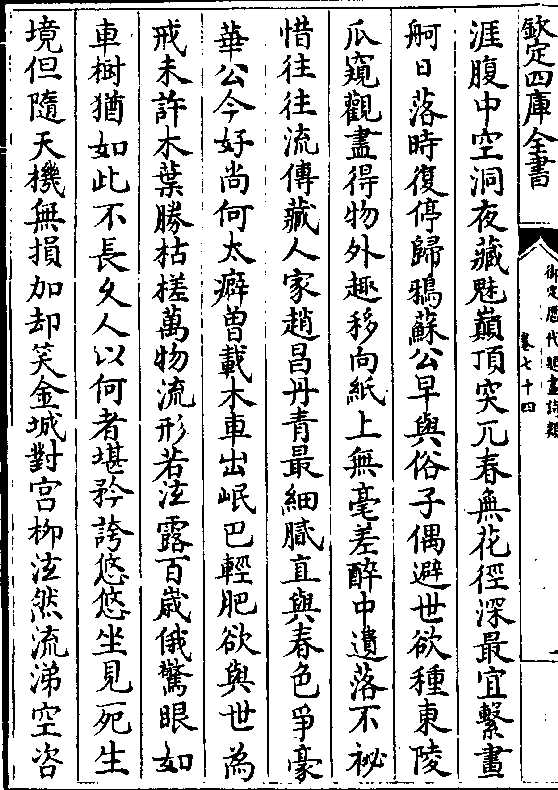 欽定四庫全書
御定歷代題畫詩類
卷七十四
涯腹中空洞夜藏魅巔頂突兀春無花徑深最宜繫畫
舸日落時復停歸鴉蘇公早與俗子偶避世欲種東陵
瓜窺觀盡得物外趣移向紙上無毫差醉中遺落不祕
惜往往流傳藏人家趙昌丹青最細膩直與春色爭豪
華公今好尚何太癖曽載木車出岷巴輕肥欲與世為
戒未許木葉勝枯槎萬物流形若泫露百歲俄驚眼如
車樹猶如此不長久人以何者堪矜誇悠悠坐見死生
境但隨天機無損加却笑金城對宫栁泫然流涕空咨